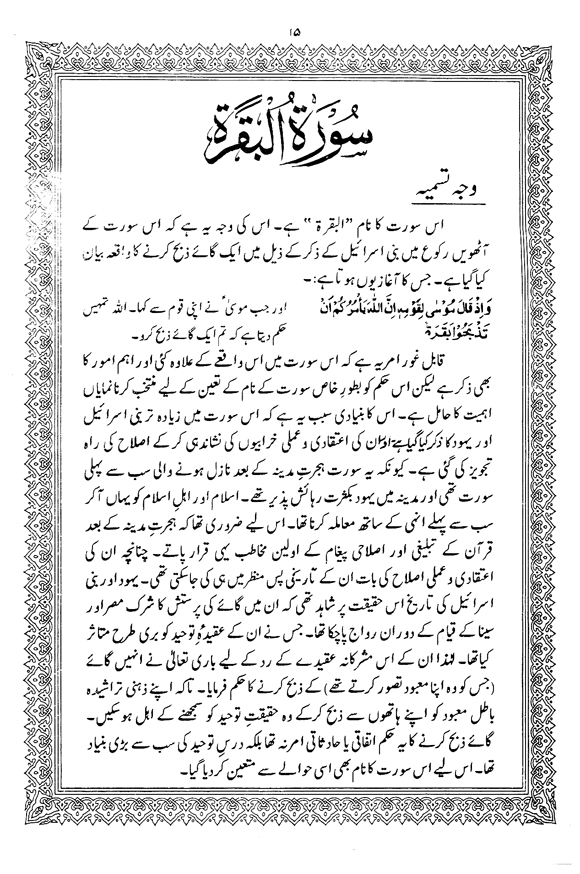 ۱۵
سُورَةُ الْبَقَرَة
وجہ تسمیہ
اس سورت کا نام ”البقرۃ“ ہے۔ اس کی وجہ یہ ہے کہ اس سورت کے
آٹھویں رکوع میں بنی اسرائیل کے ذکر کے ذیل میں ایک گائے ذبح کرنے کا واقعہ بیان
کیا گیا ہے۔ جس کا آغاز یوں ہوتا ہے:۔
وَاِذْ قَالَ مُوْسٰی لِقَوْمِہٖ اِنَّ اللّٰہَ یَاْمُرُکُمْ اَنْ اور جب موسیٰؑ نے اپنی قوم سے کہا۔ اللہ تمہیں
تَذْبَحُوْا بَقَرَۃً حکم دیتا ہے کہ تم ایک گائے ذبح کرو۔
قابل غور امر یہ ہے کہ اس سورت میں اس واقعے کے علاوہ کئی اور اہم امور کا
بھی ذکر ہے لیکن اس حکم کو بطورِ خاص سورت کے نام کے تعین کے لیے منتخب کرنا نمایاں
اہمیت کا حامل ہے۔ اس کا بنیادی سبب یہ ہے کہ اس سورت میں زیادہ تر بنی اسرائیل
اور یہود کا ذکر کیا گیا ہے اور ان کی اعتقادی و عملی خرابیوں کی نشاندہی کر کے اصلاح کی راہ
تجویز کی گئی ہے۔ کیونکہ یہ سورت ہجرتِ مدینہ کے بعد نازل ہونے والی سب سے پہلی
سورت تھی اور مدینہ میں یہود بکثرت رہائش پذیر تھے۔ اسلام اور اہلِ اسلام کو یہاں آ کر
سب سے پہلے انہی کے ساتھ معاملہ کرنا تھا۔ اس لیے ضروری تھا کہ ہجرتِ مدینہ کے بعد
قرآن کے تبلیغی اور اصلاحی پیغام کے اولین مخاطب یہی قرار پاتے۔ چنانچہ ان کی
اعتقادی و عملی اصلاح کی بات ان کے تاریخی پس منظر میں ہی کی جا سکتی تھی۔ یہود اور بنی
اسرائیل کی تاریخ اس حقیقت پر شاہد تھی کہ ان میں گائے کی پرستش کا شرک مصر اور
سینا کے قیام کے دوران رواج پا چکا تھا۔ جس نے ان کے عقیدۂ توحید کو بری طرح متاثر
کیا تھا۔ لہٰذا ان کے اس مشرکانہ عقیدے کے رد کے لیے باری تعالیٰ نے انہیں گائے
(جس کو وہ اپنا معبود تصور کرتے تھے) کے ذبح کرنے کا حکم فرمایا۔ تاکہ اپنے ذہنی تراشیدہ
باطل معبود کو اپنے ہاتھوں سے ذبح کر کے وہ حقیقتِ توحید کو سمجھنے کے اہل ہو سکیں۔
گائے ذبح کرنے کا یہ حکم اتفاقی یا حادثاتی امر نہ تھا بلکہ درسِ توحید کی سب سے بڑی بنیاد
تھا۔ اس لیے اس سورت کا نام بھی اسی حوالے سے متعین کر دیا گیا۔